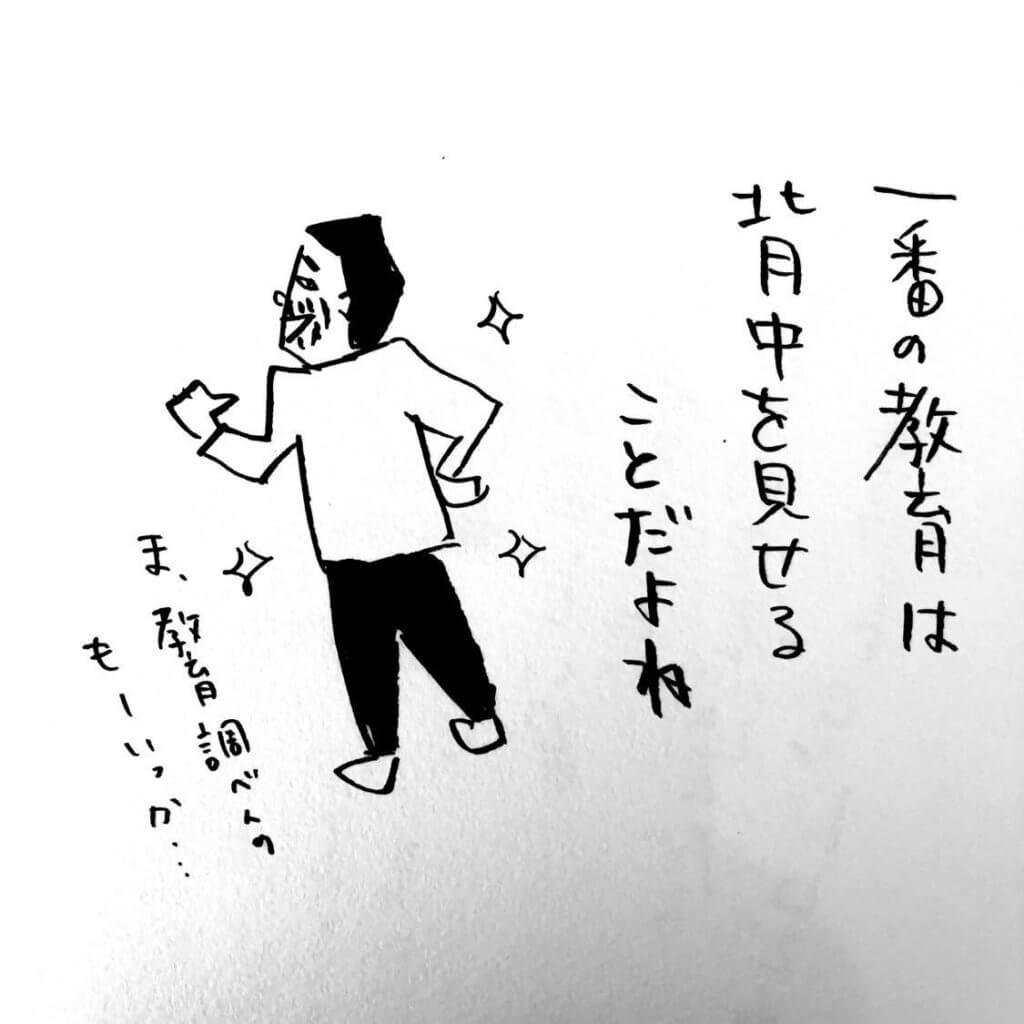 一番の教育は
背中を見せる
ことだよね
ま、教育調べんの
もーいっか・・